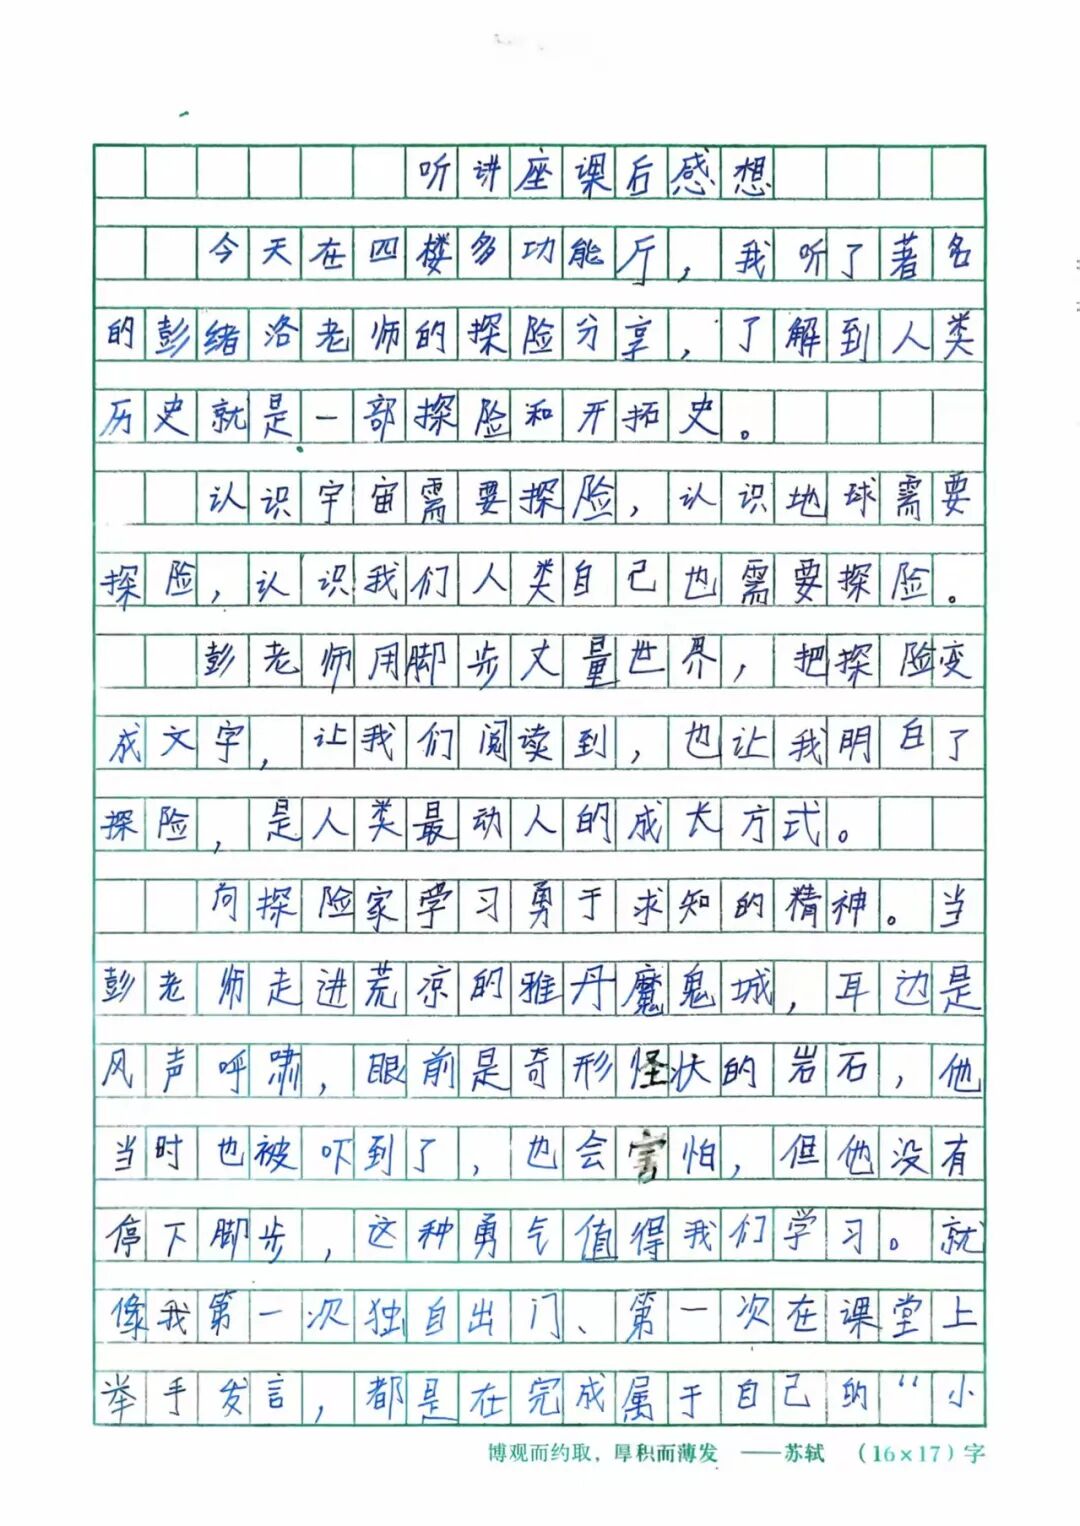 听讲座课后感想
今天在四楼多功能厅，我听了著名
的彭绪洛老师的探险分享，了解到人类
历史就是一部探险和开拓史。
认识宇宙需要探险，认识地球需要
探险，认识我们人类自己也需要探险。
彭老师用脚步丈量世界，把探险变
成文字，让我们阅读到，也让我明白了
探险，是人类最动人的成长方式。
向探险家学习勇于求知的精神。当
彭老师走进荒凉的雅丹魔鬼城，耳边是
风声呼啸，眼前是奇形怪状的岩石，他
当时也被吓到了，也会害怕，但他没有
停下脚步，这种勇气值得我们学习。就
像我第一次独自出门、第一次在课堂上
举手发言，都是在完成属于自己的“小
博观而约取，厚积而薄发 ——苏轼 （16×17）字